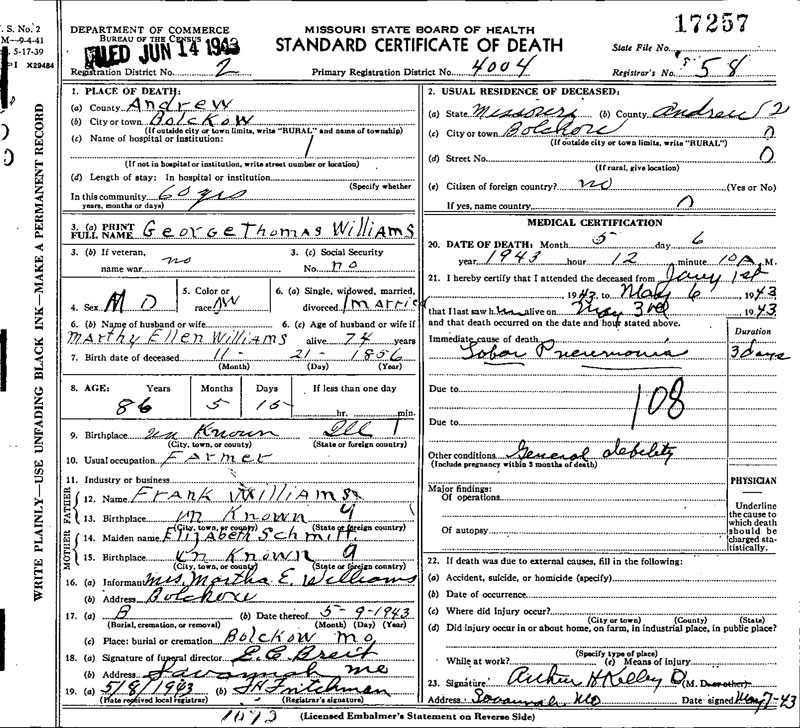 S. No. 2
M—9-4-41
5-17-39
X29484
WRITE PLAINLY—USE UNFADING BLACK INK—MAKE A PERMANENT RECORD
DEPARTMENT OF COMMERCE
BUREAU OF THE CENSUS
FILED JUN 14 1943
MISSOURI STATE BOARD OF HEALTH
STANDARD CERTIFICATE OF DEATH
17257
State File No.
Registration District No. 2
Primary Registration District No. 4004
Registrar's No. 58
1. PLACE OF DEATH:
(a) County Andrew
(b) City or town Bolckow
(If outside city or town limits, write "RURAL" and name of township)
(c) Name of hospital or institution:
(If not in hospital or institution, write street number or location)
(d) Length of stay: In hospital or institution
(Specify whether
In this community 60 yrs
years, months or days)
3. (a) PRINT FULL NAME George Thomas Williams
3. (b) If veteran, name war no
3. (c) Social Security No. no
4. Sex M
5. Color or race W
6. (a) Single, widowed, married, divorced Married
6. (b) Name of husband or wife
6. (c) Age of husband or wife if
Marthy Ellen Williams alive 74 years
7. Birth date of deceased 11- 21- 1856
(Month) (Day) (Year)
8. AGE: Years Months Days If less than one day
86 5 15 hr. min.
9. Birthplace un Known Ill
(City, town, or county) (State or foreign country)
10. Usual occupation Farmer
11. Industry or business
FATHER
12. Name Frank Williams
13. Birthplace un Known 9
(City, town, or county) (State or foreign country)
MOTHER
14. Maiden name Elizabeth Schmitt
15. Birthplace un Known 9
(City, town, or county) (State or foreign country)
16. (a) Informant Mrs. Martha E. Williams
(b) Address Bolckow
17. (a) B (b) Date thereof 5-9-1943
(Burial, cremation, or removal) (Month) (Day) (Year)
(c) Place: burial or cremation Bolckow Mo
18. (a) Signature of funeral director E. C. Breit
(b) Address Savannah Mo
19. (a) 5/8/1943 (b) Fritchman
(Date received local registrar) (Registrar's signature)
2. USUAL RESIDENCE OF DECEASED:
(a) State Missouri (b) County Andrew 2
(c) City or town Bolckow 0
(If outside city or town limits, write "RURAL")
(d) Street No. 0
(If rural, give location)
(e) Citizen of foreign country? no (Yes or No)
If yes, name country 0
MEDICAL CERTIFICATION
20. DATE OF DEATH: Month 5 day 6
year 1943 hour 12 minute 10 A. M.
21. I hereby certify that I attended the deceased from Jany 1st
1943, to May 6, 1943
that I last saw him alive on May 3rd, 1943
and that death occurred on the date and hour stated above.
Duration
Immediate cause of death
Lobar Pneumonia 3 days
Due to
108
Due to
Other conditions General debility
(Include pregnancy within 3 months of death)
PHYSICIAN
Major findings:
Of operations
Of autopsy
Underline the cause to which death should be charged statistically.
22. If death was due to external causes, fill in the following:
(a) Accident, suicide, or homicide (specify)
(b) Date of occurrence
(c) Where did injury occur?
(City or town) (County) (State)
(d) Did injury occur in or about home, on farm, in industrial place, in public place?
(Specify type of place)
While at work? (e) Means of injury
23. Signature Arthur H Kelley D (M. D. or other)
Address Savannah Mo Date signed May 7-43
(Licensed Embalmer's Statement on Reverse Side)